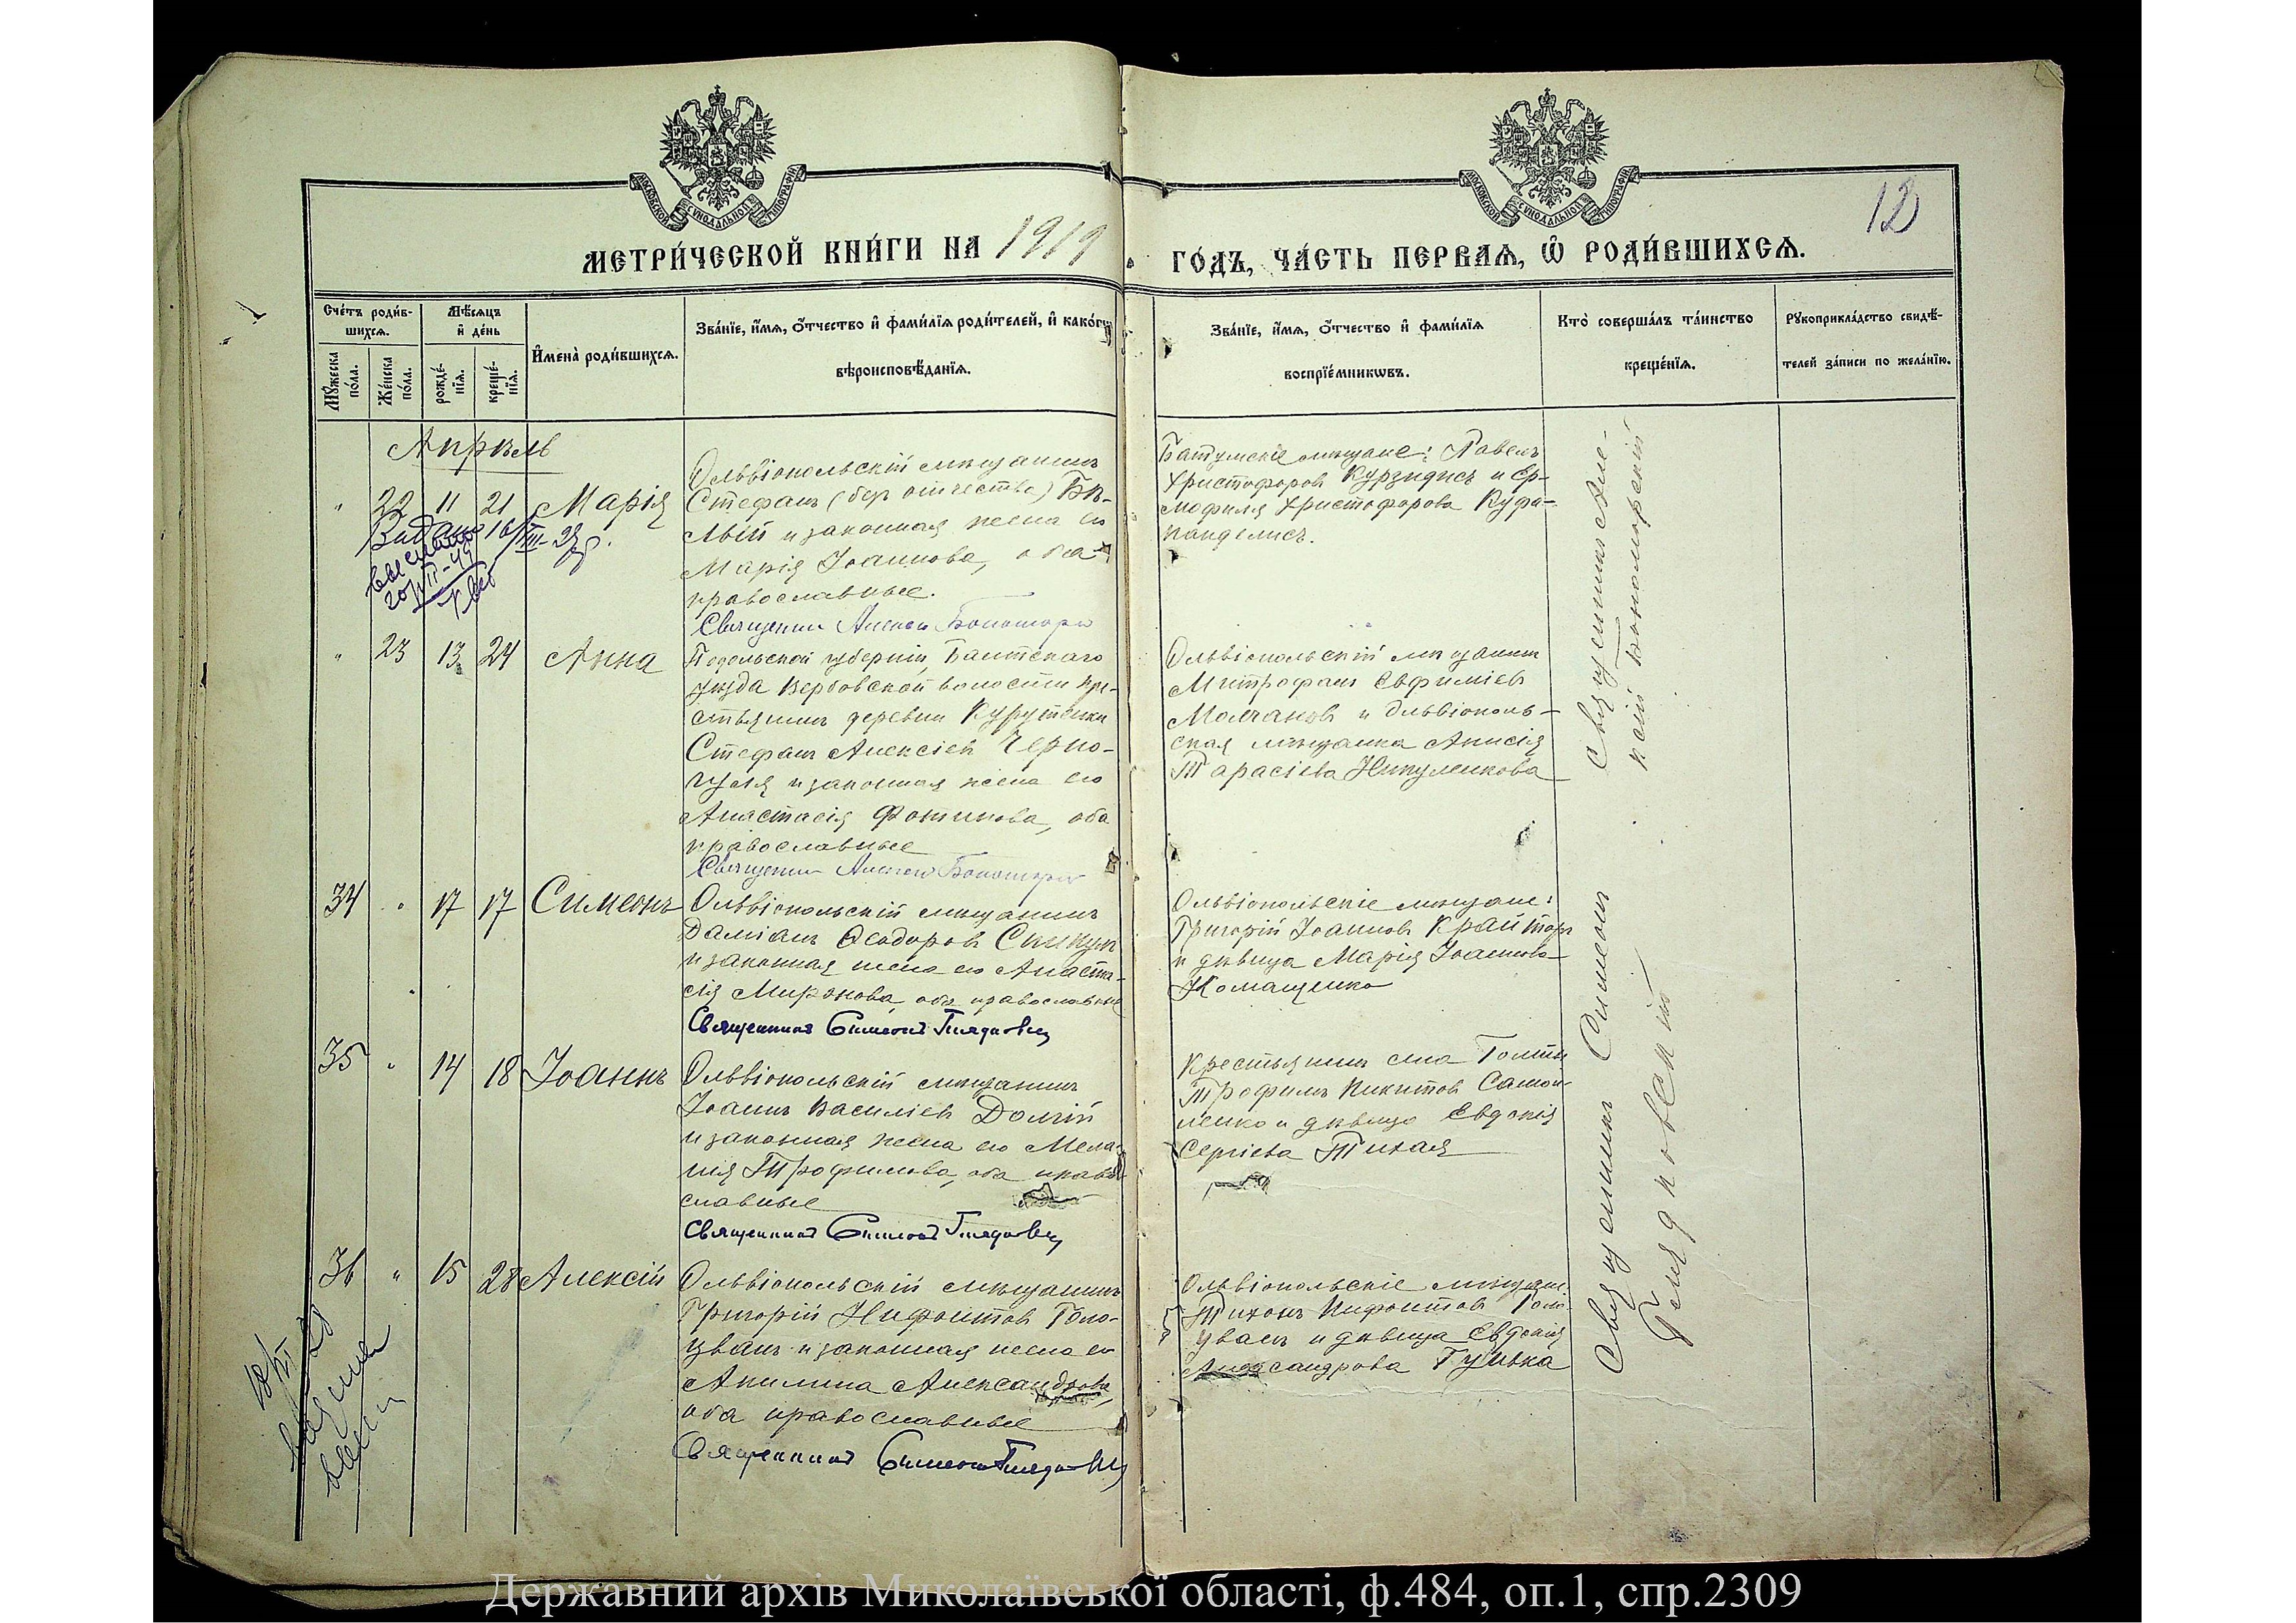 МОСКОВСКОЙ СѴНОДАЛЬНОЙ ТИПОГРАФІИ
МОСКОВСКОЙ СѴНОДАЛЬНОЙ ТИПОГРАФІИ
12
МЕТРИ́ЧЕСКОЙ КНИ́ГИ НА 1919 ГО́ДЪ, ЧА́СТЬ ПЕРВАЯ, Ѡ РОДИ́ВШИХСЯ.
Сче́тъ роди́в-
шихся.
Мѣ́сяцъ
и де́нь
Мꙋжеска
по́ла.
Же́нска
по́ла.
рожде́-
нїя.
креще́-
нїя.
И҆мена̀ роди́вшихся.
Зва́нїе, и҆́мя, ѻ҆́тчество и҆ фами́лїя роди́телей, и҆ како́гѡ
вѣроисповѣ́данїя.
Зва́нїе, и҆́мя, ѻ҆́тчество и҆ фами́лїя
воспрїе́мникѡвъ.
Кто̀ соверша́лъ та́инство
креще́нїя.
Рꙋкоприкла́дство свидѣ́-
телей за́писи по жела́нїю.
Апрѣль
" 22 11 21 Марія
Ольвіопольскій мѣщанинъ
Стефанъ (безъ отчества) Бѣ-
лый и законная жена его
Марія Іоаннова, оба
православные.
Священникъ Алексій Бономорскій
Батумскіе мѣщане: Павелъ
Христофоровъ Курзидисъ и Ер-
мофилія Христофорова Куфа-
панделисъ.
Видано 16/III-29 р.
20/VII-49
Священникъ Але-
ксій Бономорскій
" 23 13 24 Анна
Подольской губерніи, Балтскаго
уѣзда Вербовской волости кре-
стьянинъ деревни
Стефанъ Алексіевъ Черно-
и законная жена его
Анастасія Фотинова, оба
православные
Священникъ Алексій Бономорскій
Ольвіопольскій мѣщанинъ
Митрофанъ Евфиміевъ
Молчановъ и Ольвіополь-
ская мѣщанка Анисія
Тарасіева Никуленкова
34 " 17 17 Симеонъ
Ольвіопольскій мѣщанинъ
Даміанъ Ѳеодоровъ
и законная жена его Анаста-
сія Миронова, оба православные
Священникъ Симеонъ Гляд­ковскій
Ольвіопольскіе мѣщане:
Григорій Іоанновъ Крайтор
и дѣвица Марія Іоаннова
Комащенко
35 " 14 18 Іоаннъ
Ольвіопольскій мѣщанинъ
Іоаннъ Василіевъ Долгій
и законная жена его Мела-
нія Трофимова, оба право-
славные
Священникъ Симеонъ Глядковскій
Крестьянинъ села Голты
Трофимъ Никитовъ Самой-
ленко и дѣвица Евдокія
Сергіева Тихая
Священникъ Симеонъ
Глядковскій
36 " 15 28 Алексій
Ольвіопольскій мѣщанинъ
Григорій Нифонтовъ Голо-
цванъ и законная жена его
Акилина Александрова,
оба православные
Священникъ Симеонъ Глядковскій
Ольвіопольскіе мѣщане:
Тихонъ Нифонтовъ Голо-
цванъ и дѣвица Евдокія
Александрова Гулька
18/XI 28
Державний архів Миколаївської області, ф.484, оп.1, спр.2309